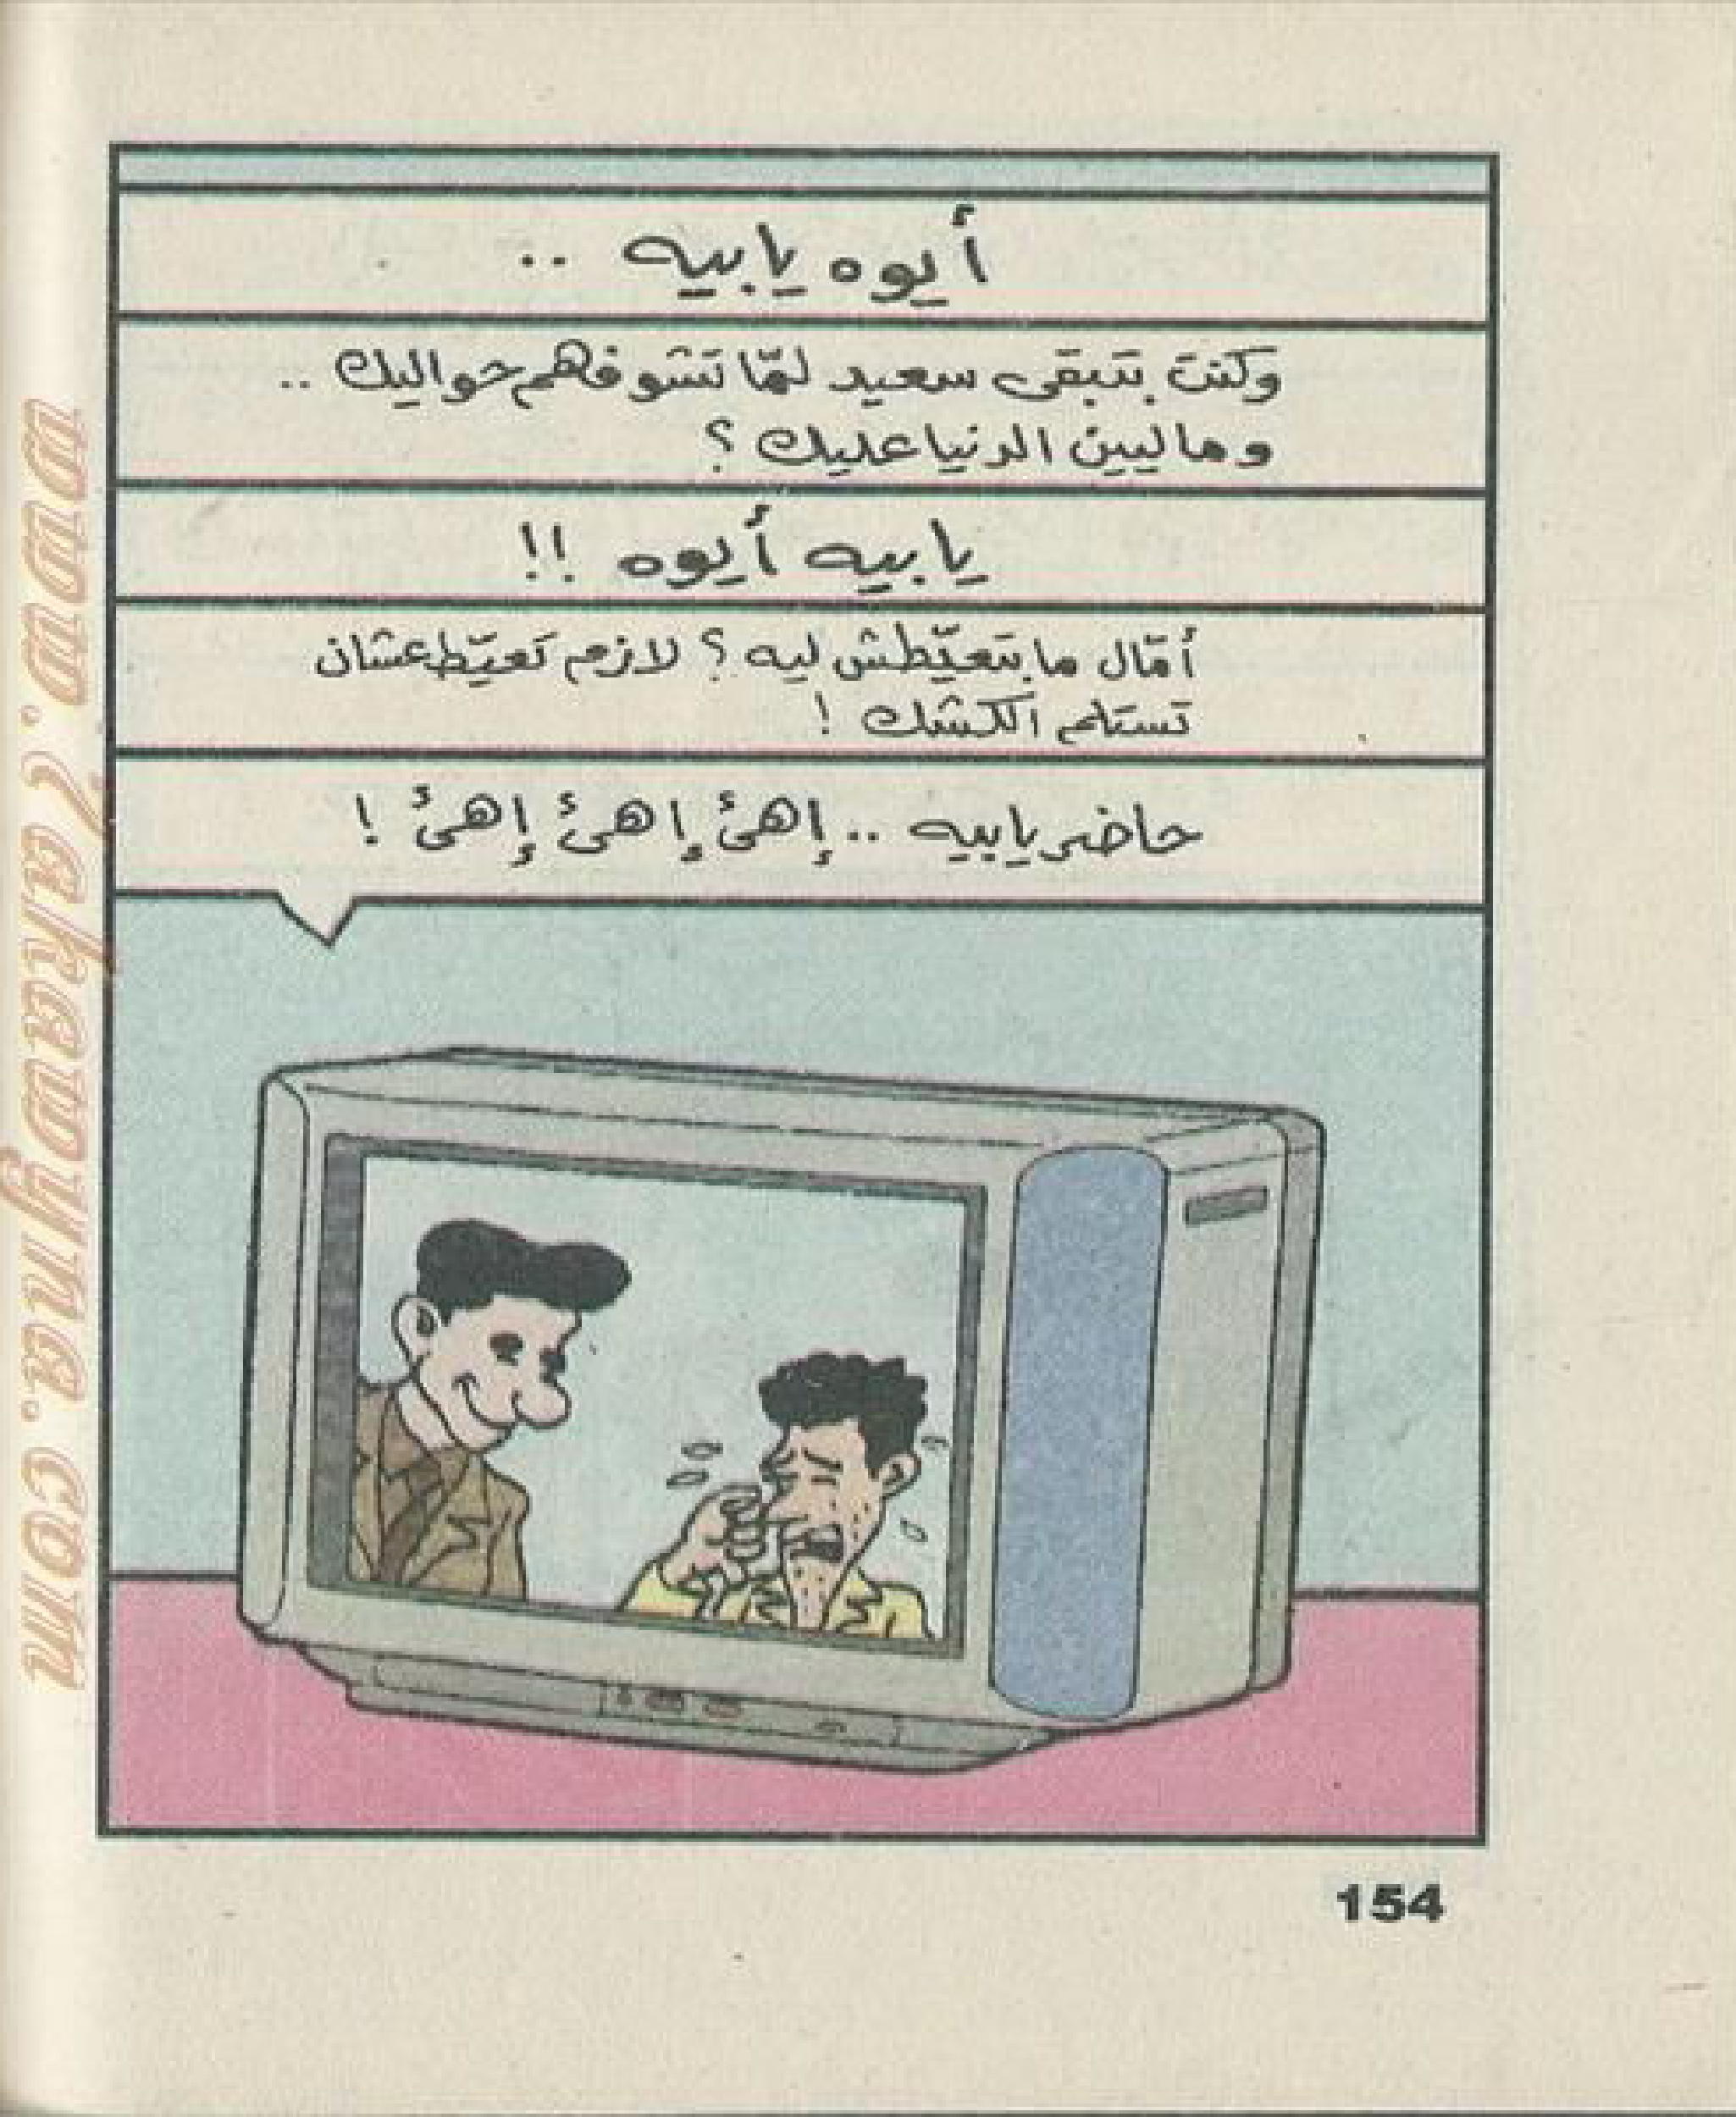 أيوه يا بيه ..
وكنت بتبقى سعيد لمّا تشوفهم حواليك ..
وماليين الدنيا عليك ؟
يا بيه أيوه !!
أمّال ما بتعيّطش ليه ؟ لازم تعيّط عشان
تستلم الكشك !
حاضر يا بيه .. إهئ إهئ إهئ !
154
www.Zakawyna.com